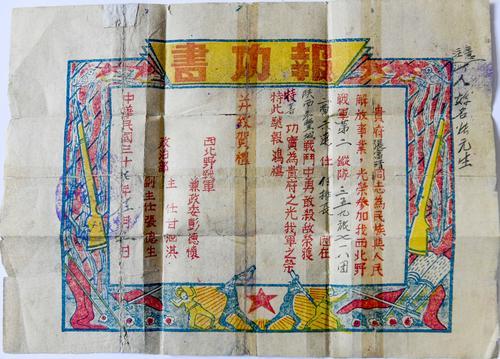 報功書
貴府張同志為民族與人民
解放事業,光榮參加我西北野
戰軍第二縱隊三五九旅七一八團
六連仕付排長因在
陝西戰鬥中勇敢殺敵榮獲
特等功實為貴府之光我軍之榮
特此馳報鴻禧
并致賀禮
西北野戰軍
兼政委彭德懷
政治部
主仕甘泗淇
副主仕張德生
中華民國三十年月日